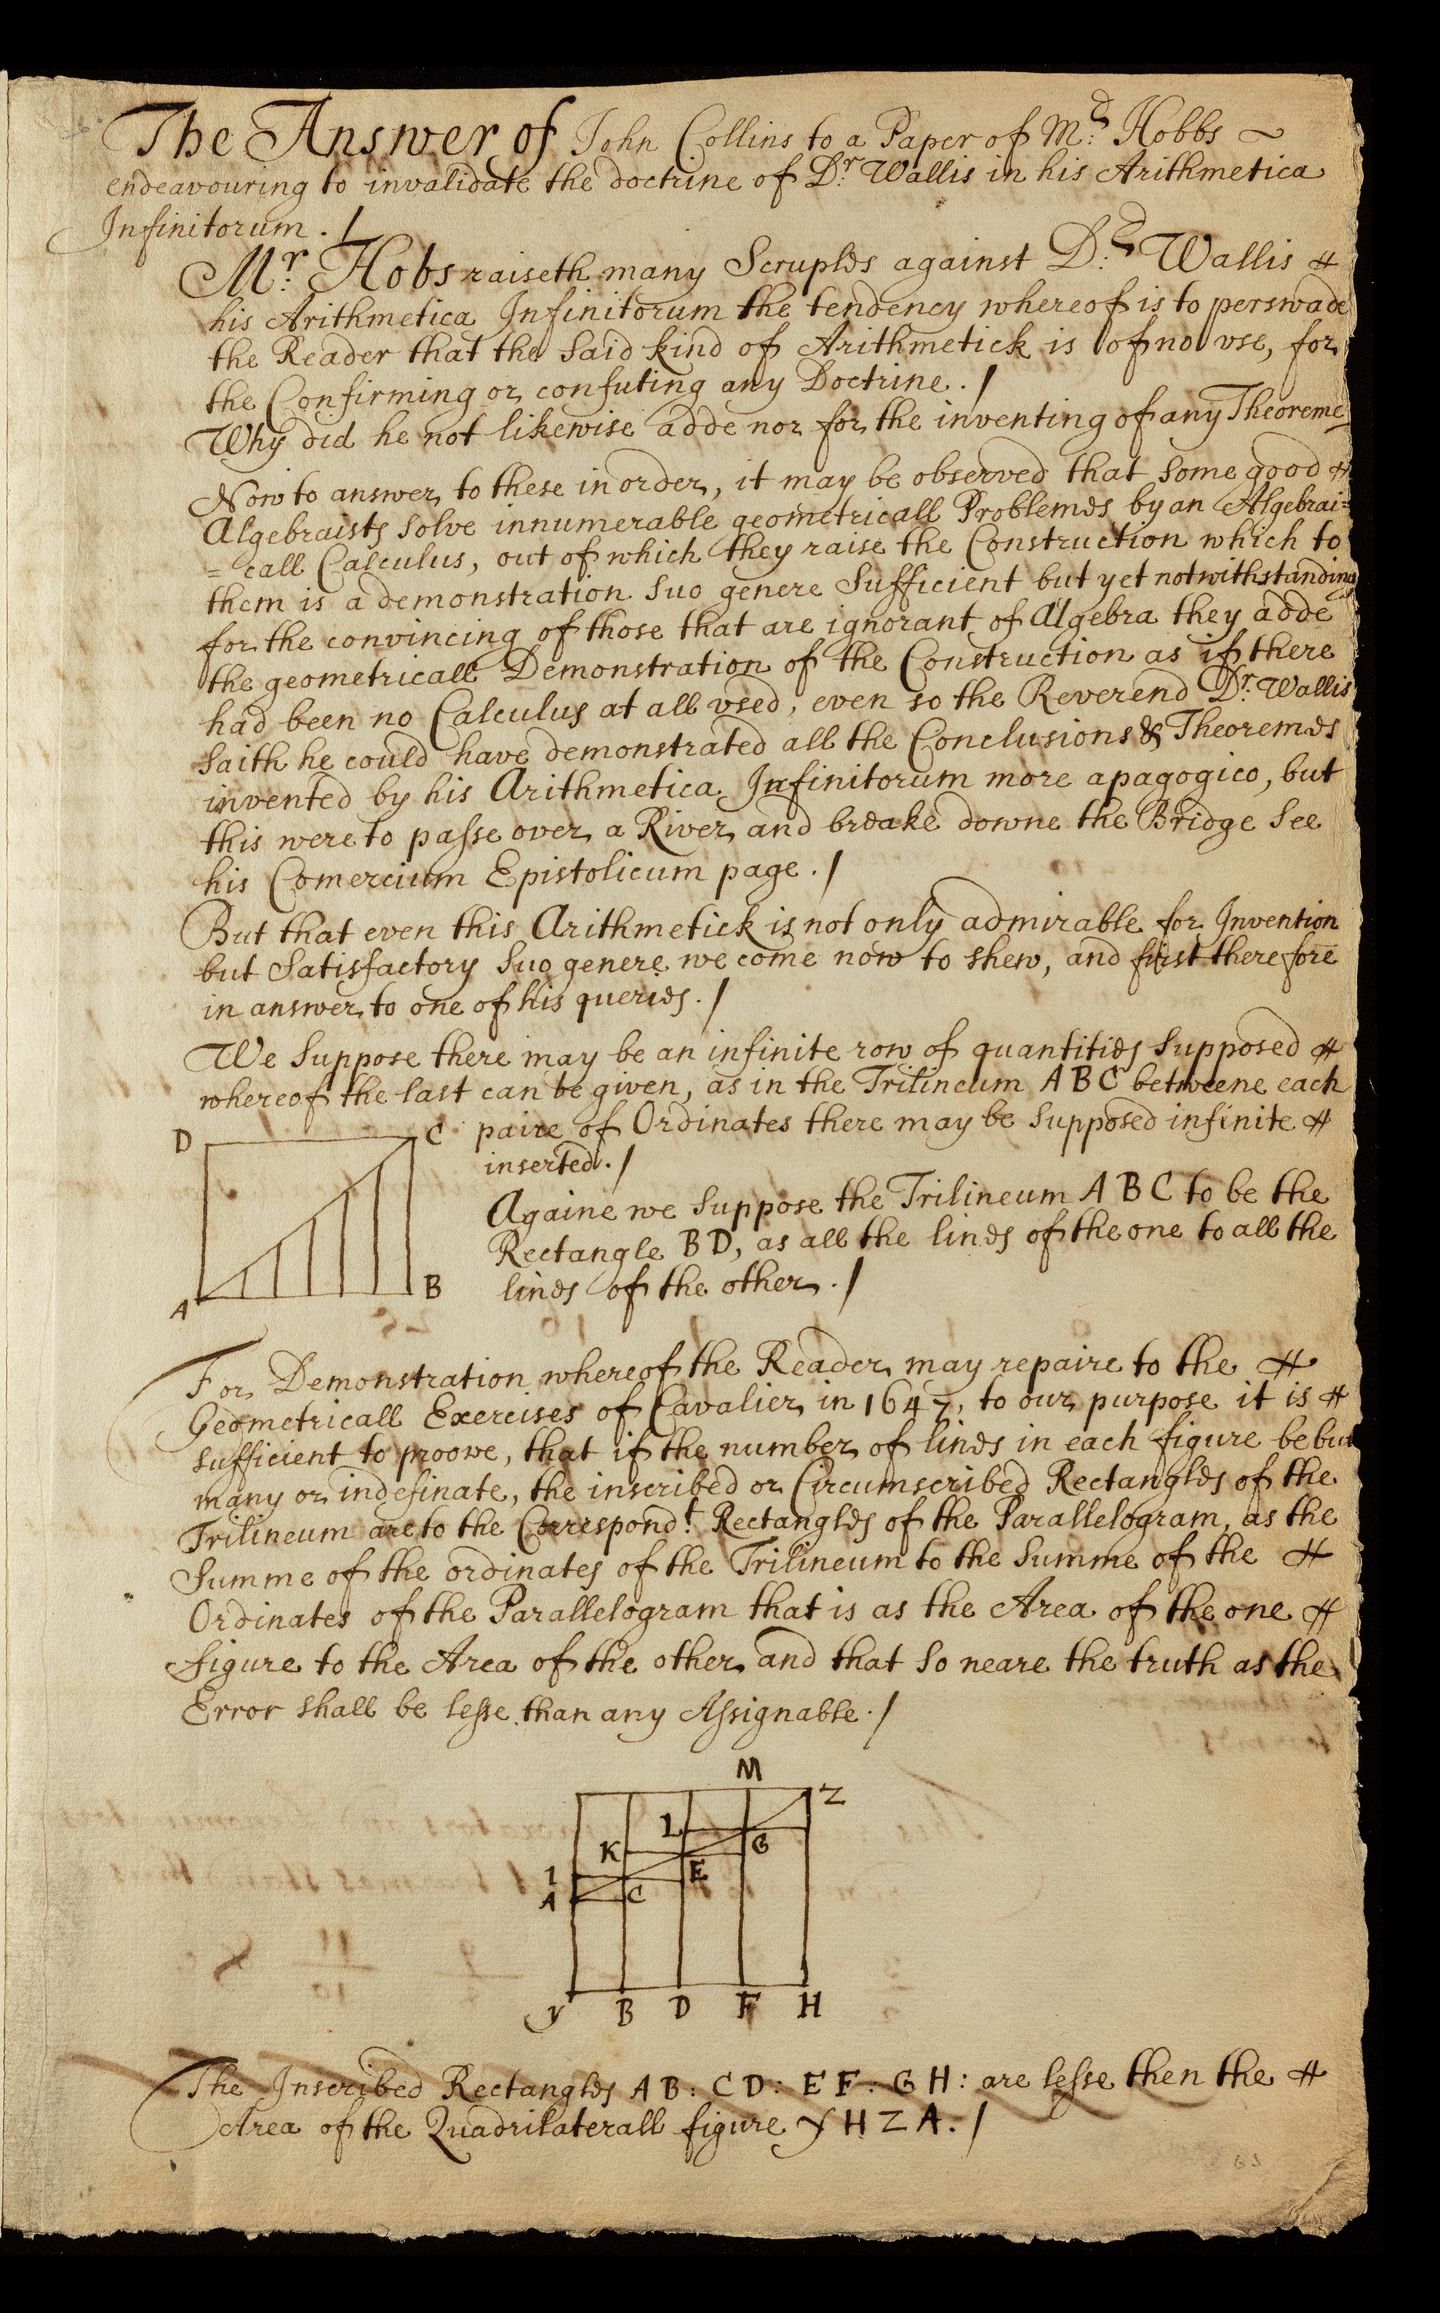 The Answer of John Collins to a Paper of Mr. Hobbs
endeavouring to invalidate the doctrine of Dr. Wallis in his Arithmetica
Infinitorum. /
Mr. Hobs raiseth many Scruples against Dr. Wallis #
his Arithmetica Infinitorum the tendency whereof is to perswade
the Reader that the said kind of Arithmetick is of no vse, for
the Confirming or confuting any Doctrine. /
Why did he not likewise adde nor for the inventing of any Theoreme
Now to answer to these in order, it may be observed that some good #
Algebraists solve innumerable geometricall Problemes by an Algebrai=
=call Calculus, out of which they raise the Construction which to
them is a demonstration suo genere Sufficient but yet notwithstanding
for the convincing of those that are ignorant of Algebra they adde
the geometricall Demonstration of the Construction as if there
had been no Calculus at all vsed, even so the Reverend Dr. Wallis
saith he could have demonstrated all the Conclusions & Theoremes
invented by his Arithmetica Infinitorum more apagogico, but
this were to passe over a River and breake downe the Bridge See
his Comercium Epistolicum page. /
But that even this Arithmetick is not only admirable for Invention
but Satisfactory suo genere we come now to shew, and first therefore
in answer to one of his queries. /
We Suppose there may be an infinite row of quantities Supposed #
whereof the last can be given, as in the Trilineum A B C betweene each
D C paire of Ordinates there may be Supposed infinite #
inserted. /
Againe we Suppose the Trilineum A B C to be the
Rectangle B D, as all the lines of the one to all the
A B lines of the other. /
For Demonstration whereof the Reader may repaire to the #
Geometricall Exercises of Cavalier in 1647, to our purpose it is #
sufficient to proove, that if the number of lines in each figure be but
many or indefinate, the inscribed or Circumscribed Rectangles of the
Trilineum are to the Correspondt. Rectangles of the Parallelogram, as the
Summe of the ordinates of the Trilineum to the Summe of the #
Ordinates of the Parallelogram that is as the Area of the one #
figure to the Area of the other and that so neare the truth as the
Error shall be lesse than any Assignable. /
M
Z
L
K G
I E
A C
y B D F H
The Inscribed Rectangles A B: C D: E F: G H: are lesse then the #
Area of the Quadrilaterall figure y H Z A. /